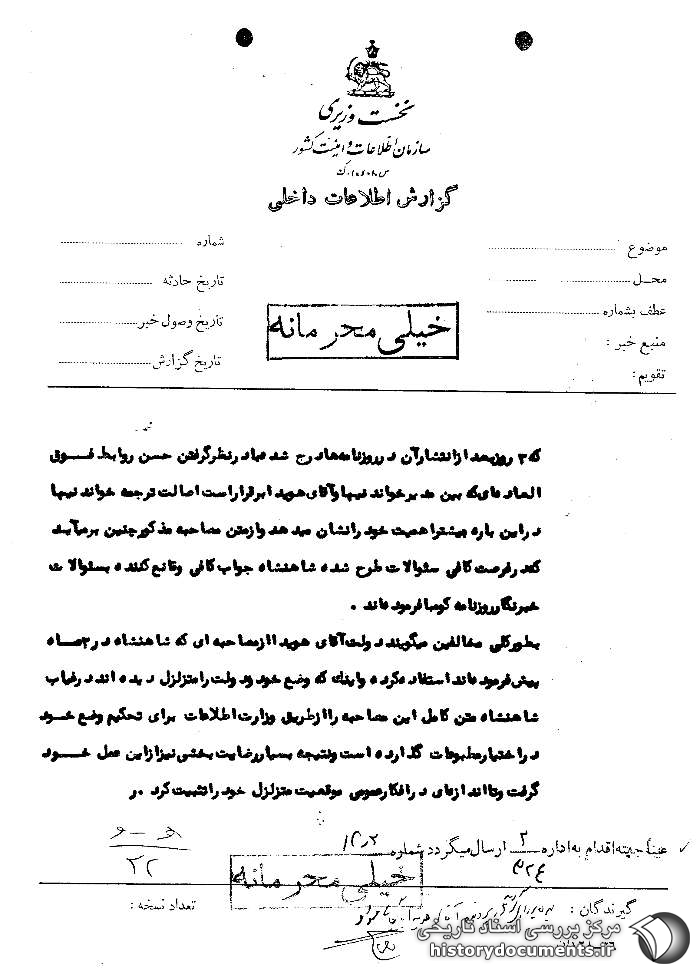 نخست وزیری
سازمان اطلاعات و امنیت کشور
گزارش اطلاعات داخلی
موضوع
شماره
محل
تاریخ حادثه
عطف بشماره
تاریخ وصول خبر
منبع خبر :
تاریخ گزارش
تقویم :
خیلی محرمانه
که ۳ روز بعد از انتشار آن در روزنامه ها درج شد میاد در نظر گرفتن حسن روابط فوق
العاده ای که بین مدیر خواندنیها و آقای هویدا برقرار است اصالت ترجمه خواندنیها
در این باره بیشتر اهمیت خود را نشان میدهد و از متن مصاحبه مذکور چنین برمیآید
که در فرصت کافی سئوالات طرح شده شاهنشاه جواب کافی و قانع کننده بسئوالات
خبرنگار روزنامه کومبا فرموده اند .
بطور کلی مخالفین میگویند دولت آقای هویدا از مصاحبه ای که شاهنشاه در ۳ ماه
پیش فرموده اند استفاده کرده و اینک که وضع خود و دولت را متزلزل دیده اند در غیاب
شاهنشاه متن کامل این مصاحبه را از طریق وزارت اطلاعات برای تحکیم وضع خود
در اختیار مطبوعات گذارده است و نتیجه بسیار رضایت بخشی نیز از این عمل خود
گرفت و تا اندازه ای در افکار عمومی موقعیت متزلزل خود را تثبیت کرد . ر
عیناً جهته اقدام به اداره ۳ ارسال میگردد شماره
۳۲۴
۵ - ۶
۲۲
خیلی محرمانه
گیرندگان :
تعداد نسخه :
مرکز بررسی اسناد تاریخی
historydocuments.ir